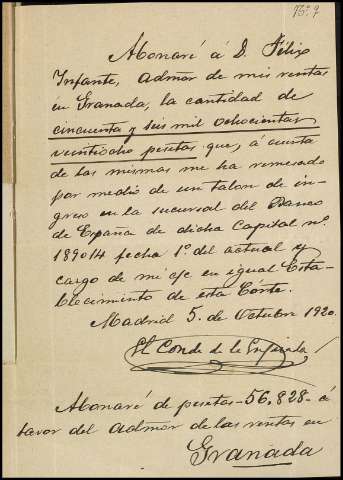 Abonaré á D. Félix
Infante, admor de mis rentas
en Granada, la cantidad de
cincuenta y seis mil ochocientas
veintiocho pesetas que, á cuenta
de las mismas me ha remesado
por medio de un talon de in-
greso en la sucursal del Banco
de España de dicha Capital nº
189014 fecha 1º del actual y
cargo de mi c/c en igual Esta-
blecimiento de esta Córte.
Madrid 5 de Octubre 1920.
El Conde de la
Abonaré de pesetas-56,828- á
favor del admor de las rentas en
Granada